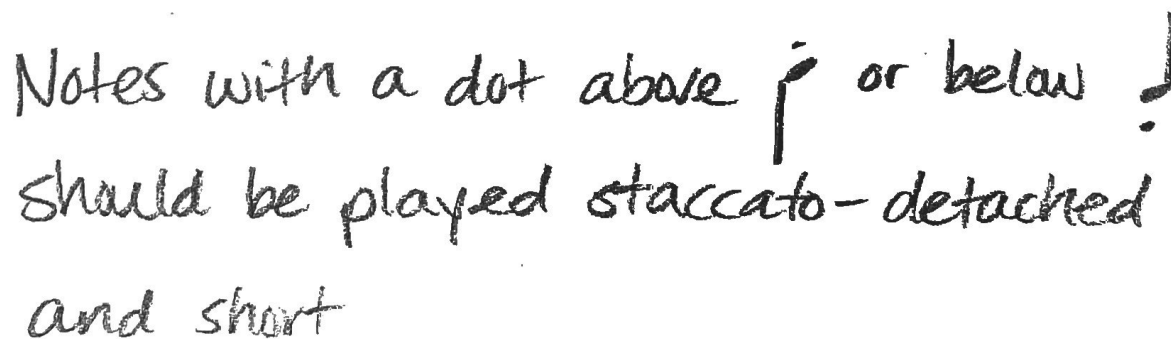 Notes with a dot above or below
should be played staccato-detached
and short